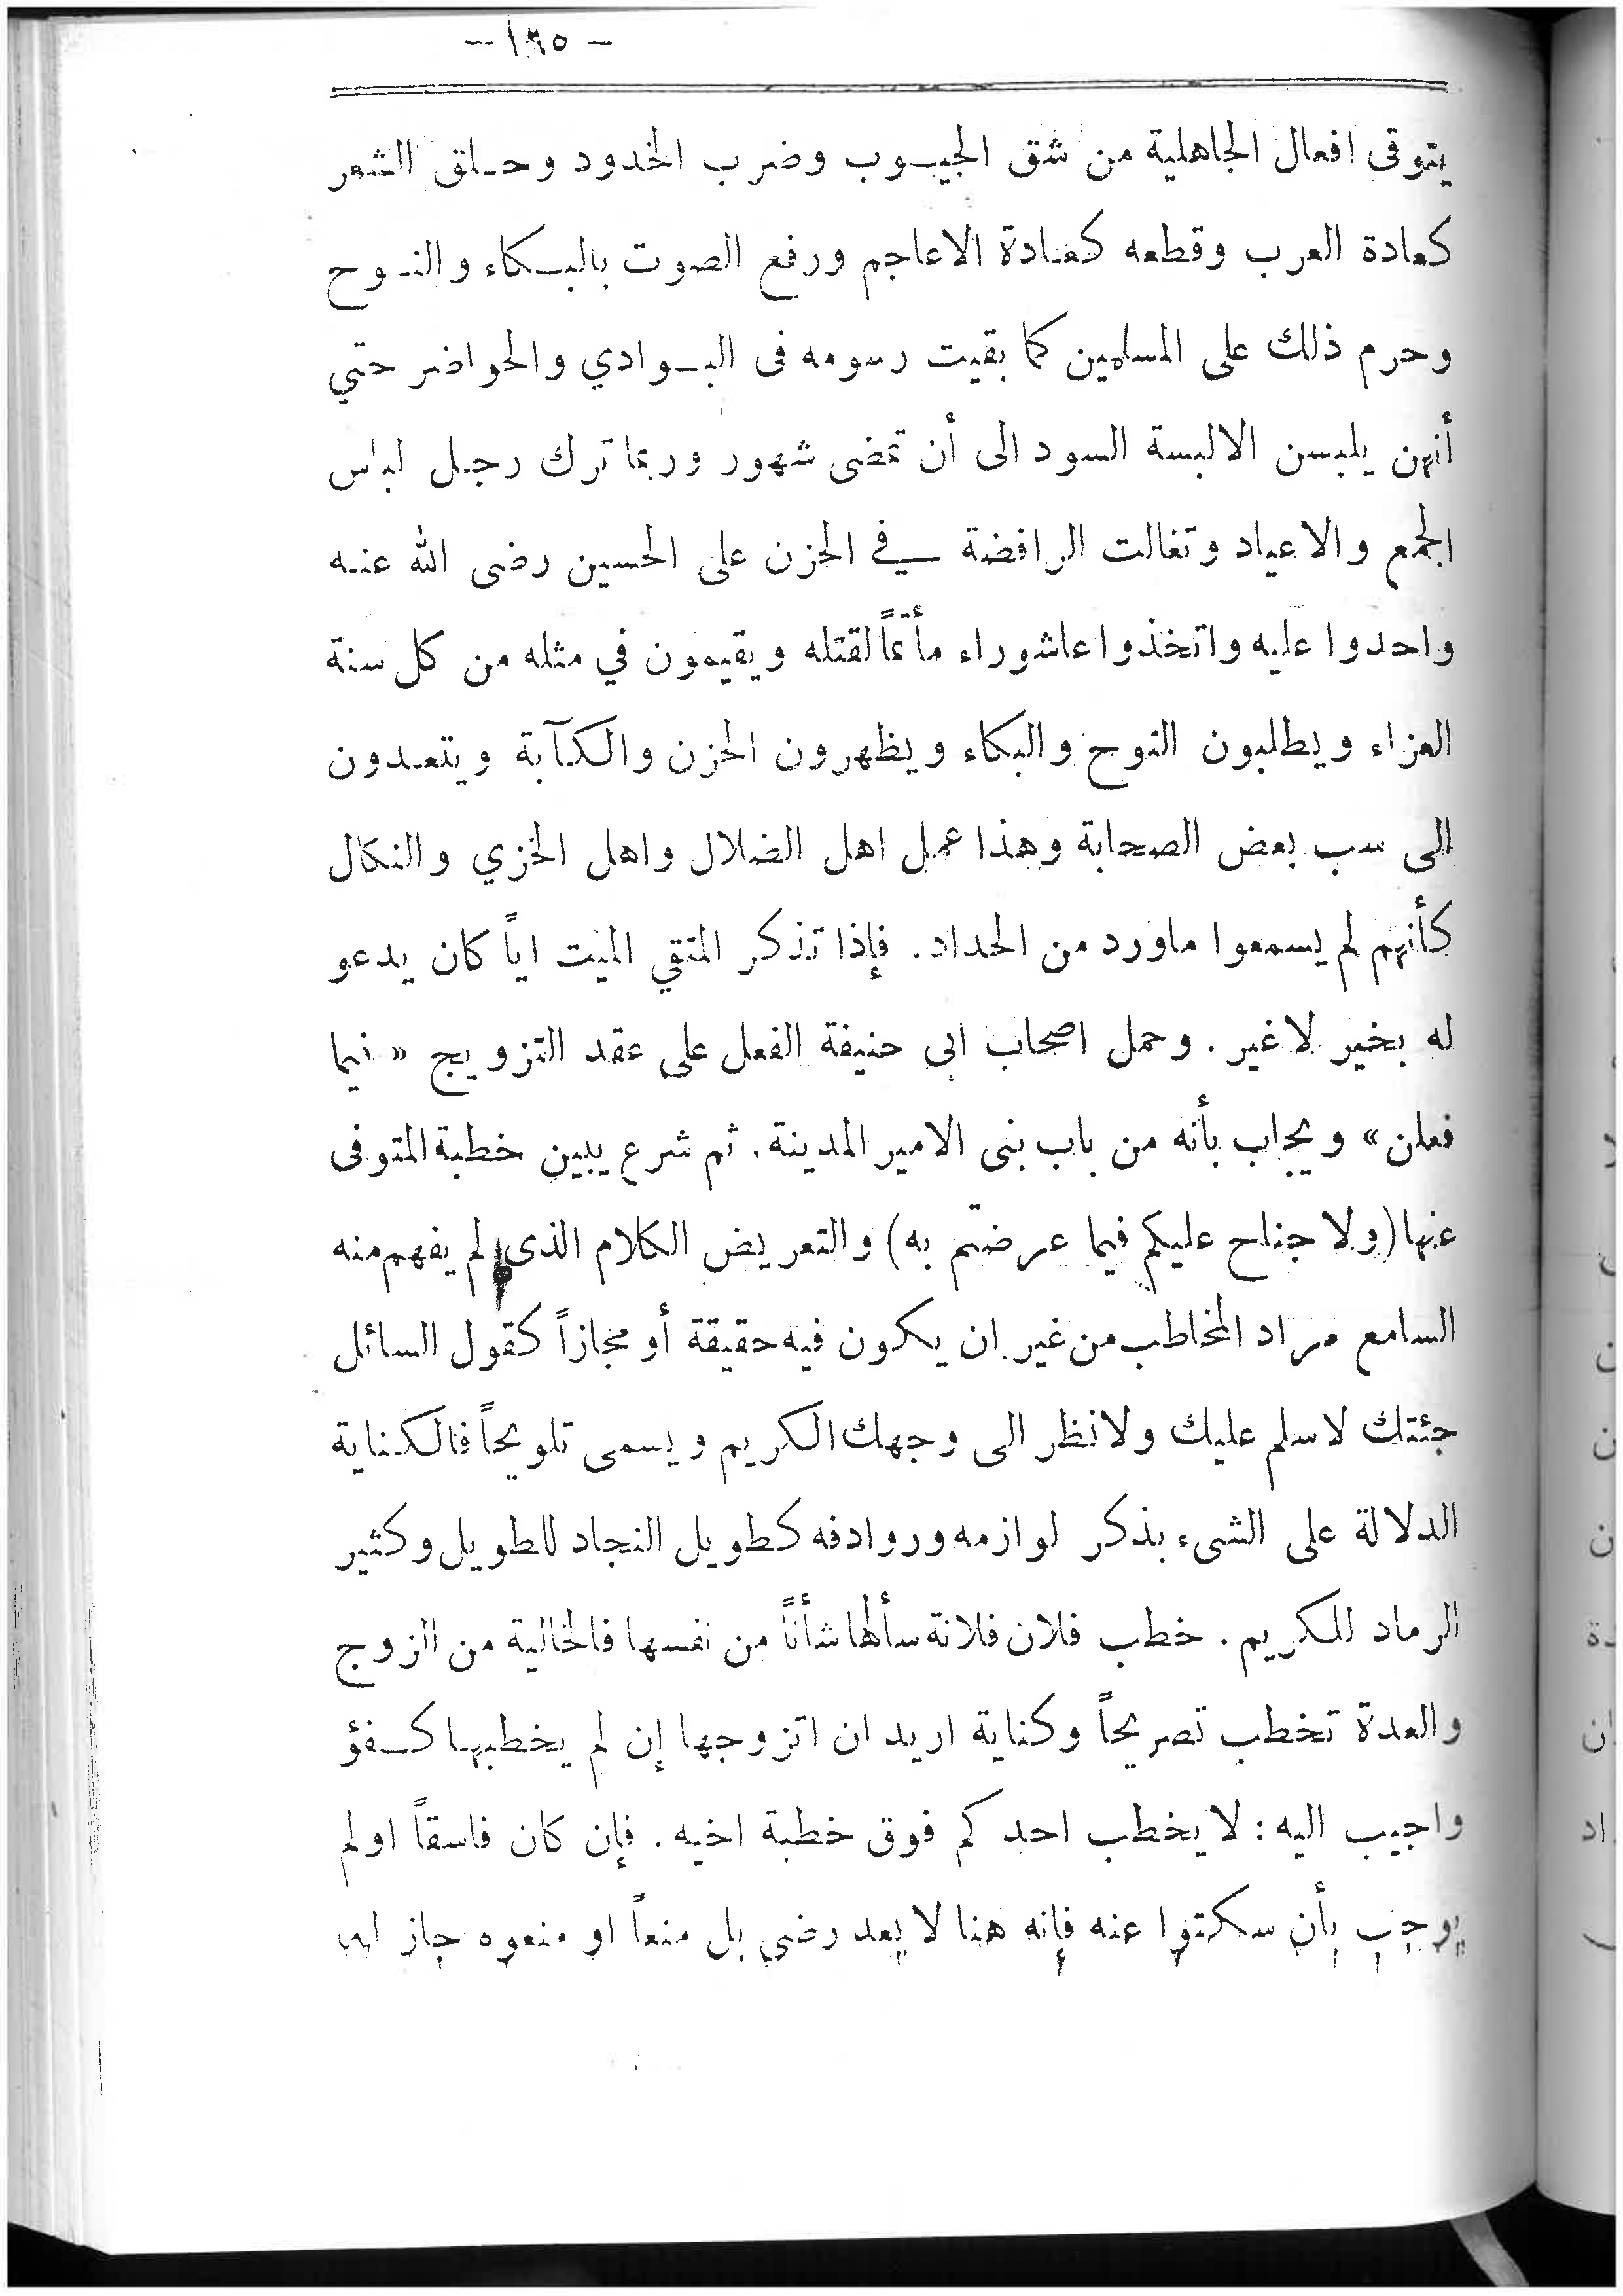 — ١٩٥ —
يتوقى افعال الجاهلية من شق الجيوب وضرب الخدود وحلق الشعر
كعادة العرب وقطعه كعادة الاعاجم ورفع الصوت بالبكاء والنوح
وحرم ذلك على المسلمين كما بقيت رسومه فى البوادي والحواضر حتى
أنهن يلبسن الالبسة السود الى أن تمضى شهور وربما ترك رجل لباس
الجمع والاعياد وتغالت الرافضة في الحزن على الحسين رضى الله عنه
واحدوا عليه واتخذوا عاشوراء مأتماً لقتله ويقيمون في مثله من كل سنة
العزاء ويطلبون النوح والبكاء ويظهرون الحزن والكآبة ويتعدون
الى سب بعض الصحابة وهذا عمل اهل الضلال واهل الخزي والنكال
كأنهم لم يسمعوا ماورد من الحداد. فإذا تذكر المتقي الميت اياً كان يدعو
له بخير لاغير. وحمل اصحاب ابى حنيفة الفعل على عقد التزويج « فيما
فعلن » ويجاب بأنه من باب بنى الامير المدينة. ثم شرع يبين خطبة المتوفى
عنها (ولا جناح عليكم فيما عرضتم به) والتعريض الكلام الذى لم يفهم منه
السامع مراد المخاطب من غير ان يكون فيه حقيقة أو مجازاً كقول السائل
جئتك لاسلم عليك ولانظر الى وجهك الكريم ويسمى تلويحاً فالكناية
الدلالة على الشىء بذكر لوازمه وروادفه كطويل النجاد للطويل وكثير
الرماد للكريم. خطب فلان فلانة سألها شأناً من نفسها فالخالية من الزوج
والعدة تخطب تصريحاً وكناية اريد ان اتزوجها إن لم يخطبها كفؤ
واجيب اليه: لا يخطب احدكم فوق خطبة اخيه. فإن كان فاسقاً اولم
يوجب بأن سكتوا عنه فإنه هنا لا يعد رضى بل منعاً او منعوه جاز